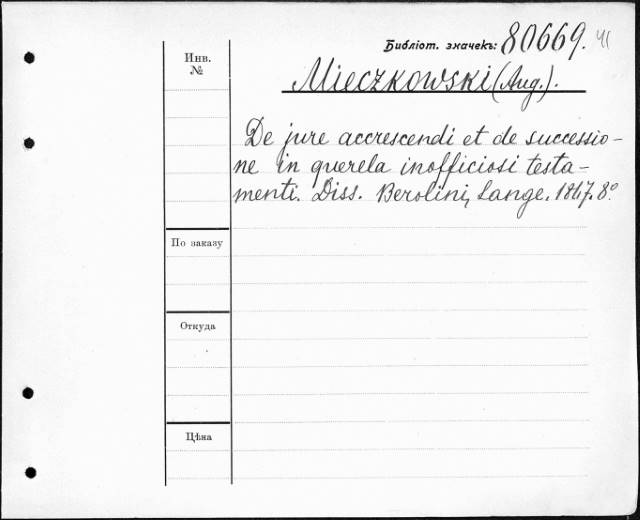 Библіот. значекъ: 80669. 41
Инв.
№
Mieczkowski (Aug.).
De jure accrescendi et de successio-
ne in querela inofficiosi testa-
menti. Diss. Berolini, Lange. 1867. 8º
По заказу
Откуда
Цѣна